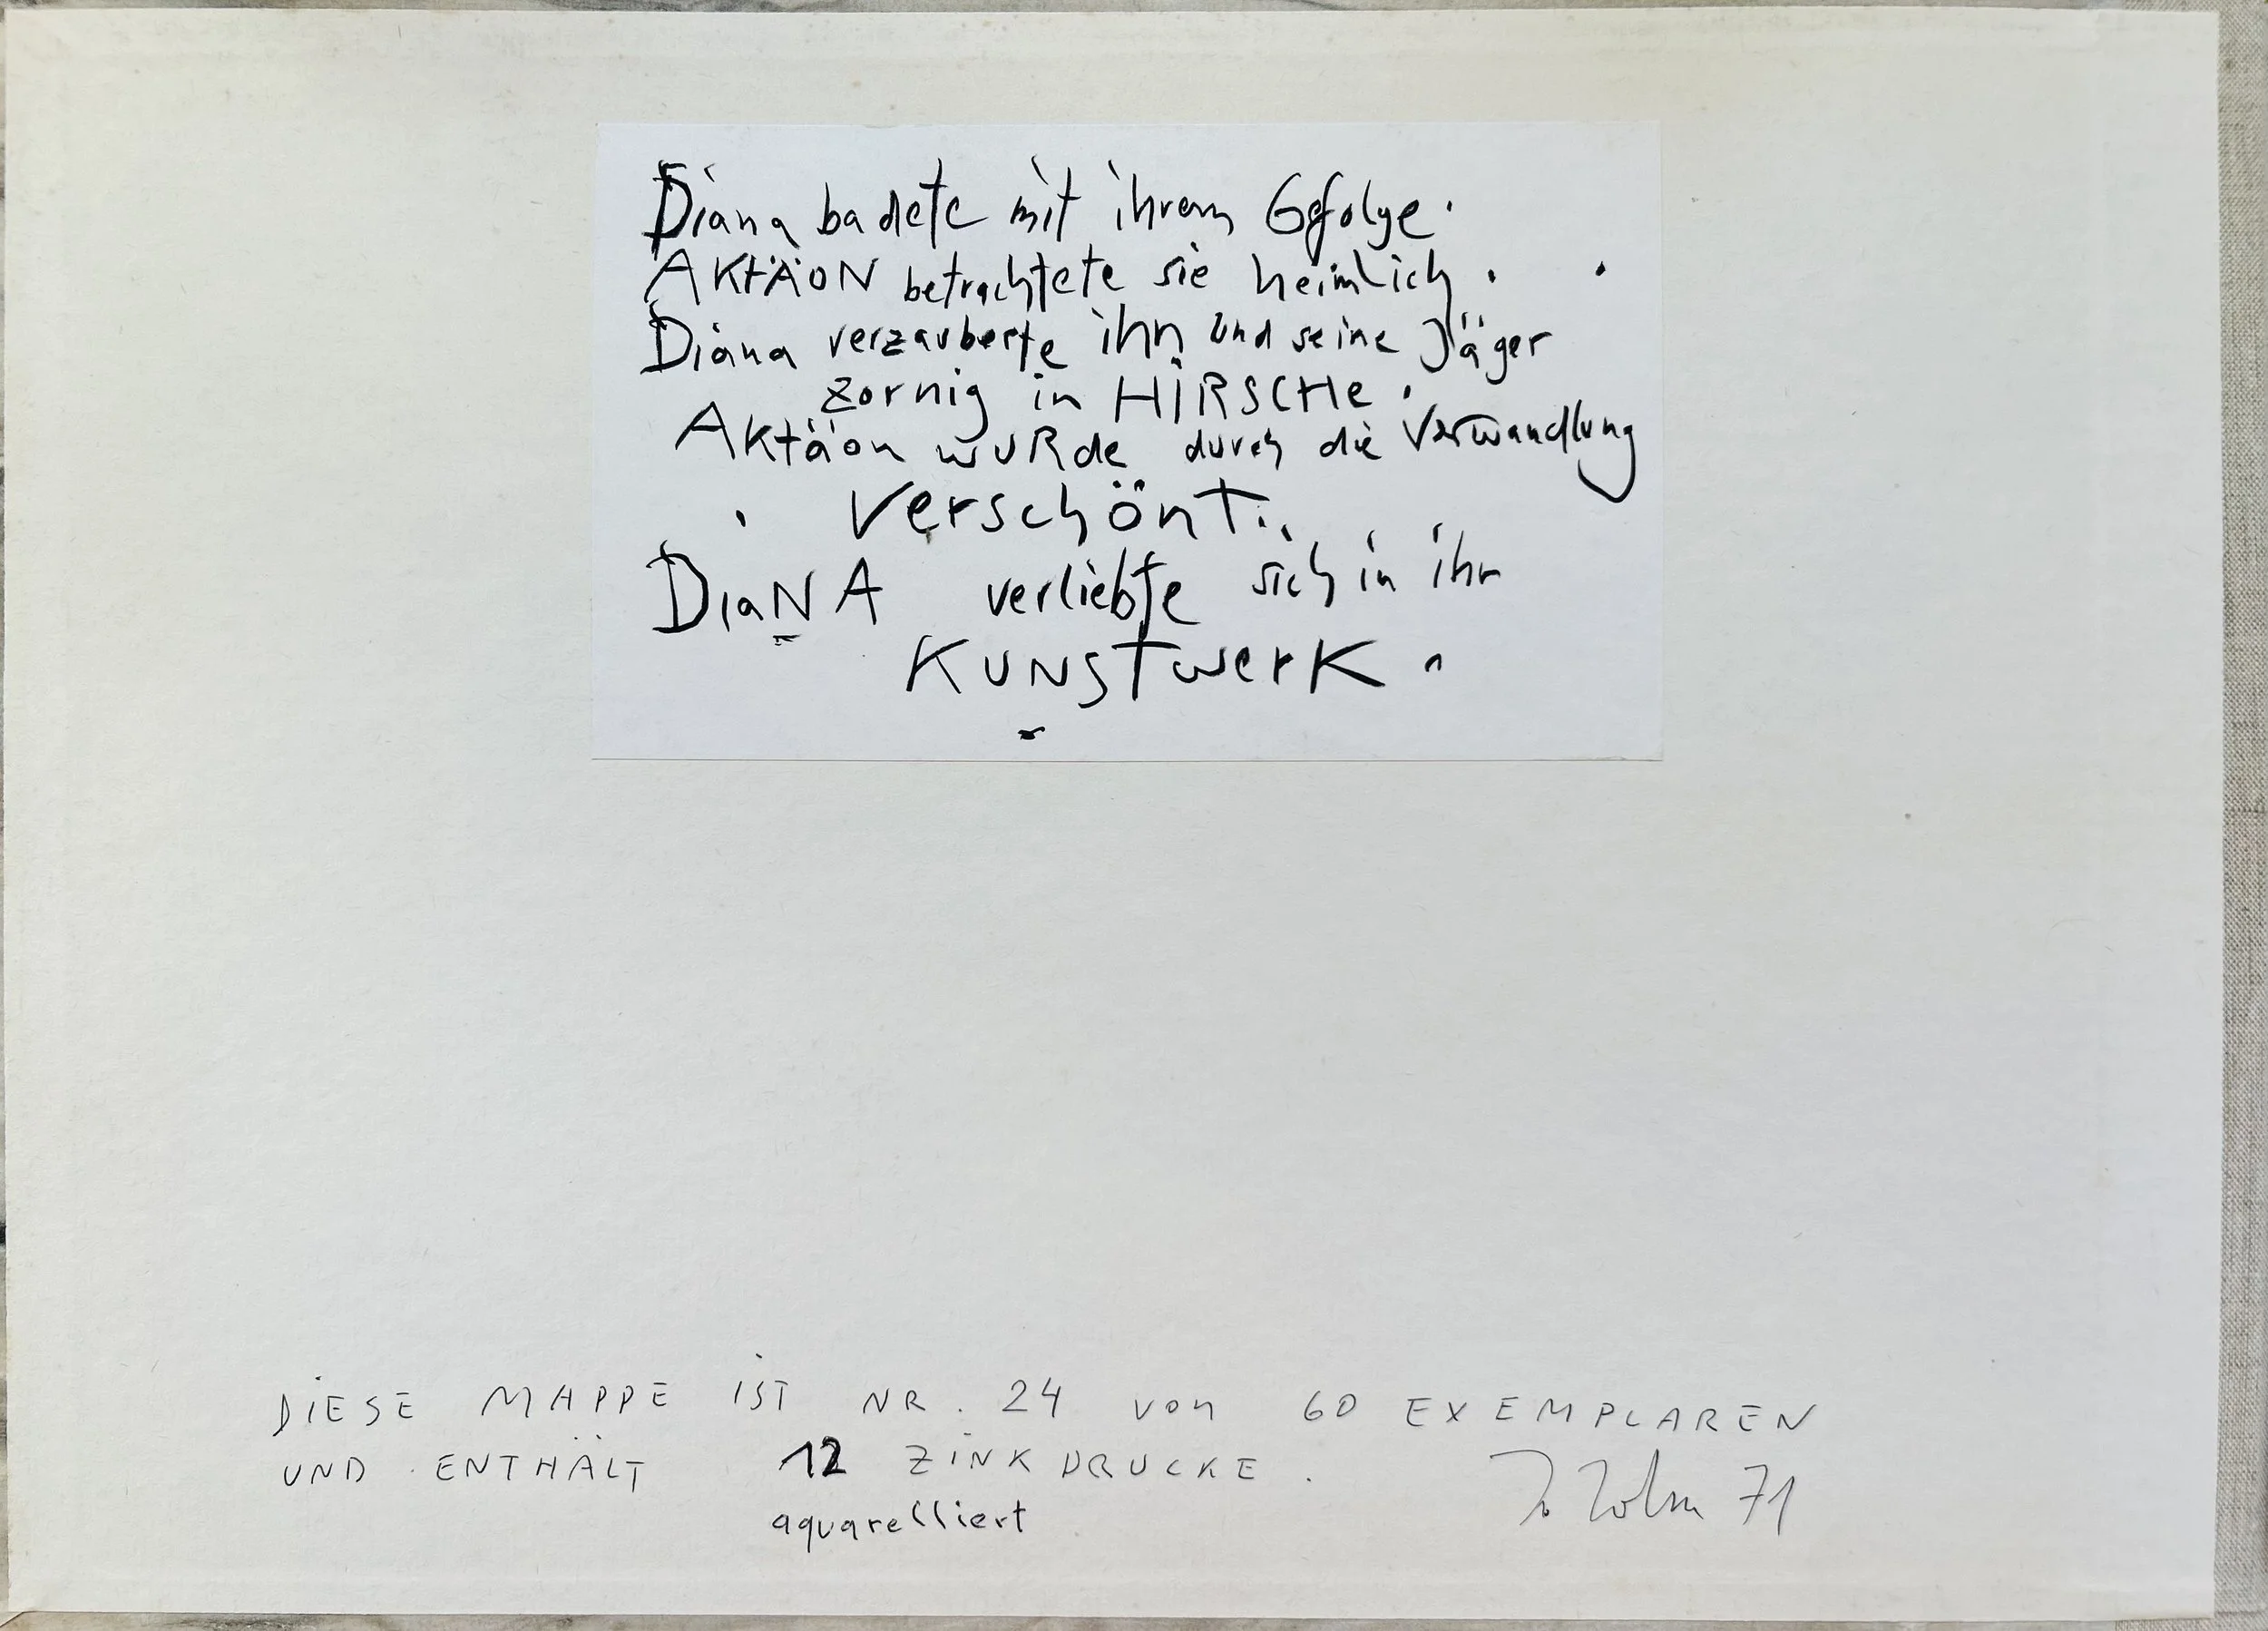 Diana badete mit ihrem Gefolge.
AKtÄoN betrachtete sie heimlich.
Diana verzauberte ihn und seine Jäger
zornig in HiRSCHe.
Aktäon wuRde durch die Verwandlung
Verschönt.
DiaNA verliebte sich in ihr
KUNSTwerK.
DiESE MAPPE iST NR. 24 von 60 EXEMPLAREN
UND ENTHÄLT 12 ZiNKDRUCKE.
aquarelliert
71